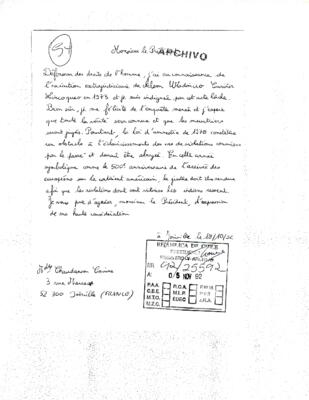 54
Monsieur le Président
ARCHIVO
Défenseur des droits de l'homme, j'ai eu connaissance de
l'exécution extrajudiciaire de Nelson Wladimiro Curiñir
Lincoqueo en 1973 et je suis indigné par cet acte lâche.
Bien sûr, je me félicite de l'enquête menée et j'espère
que toute la vérité sera connue et que les meurtriers
seront jugés. Pourtant, la loi d'amnistie de 1978 constitue
un obstacle à l'éclaircissement des cas de violations commises
par le passé et devrait être abrogée. En cette année
symbolique comme le 500è anniversaire de l'arrivée des
européens sur le continent américain, la justice doit être rendue
afin que les violations dont sont victimes les indiens cessent.
Je vous prie d'agréer, monsieur le Président, l'expression
de ma haute considération
à Joinville le 19/10/92
REPUBLICA DE CHILE
PRESIDENCIA
REGISTRO Y ARCHIVO
NR. 92/25592
A: 05 NOV 92
P.A.A. R.C.A. F.W.M.
C.B.E. M.L.P. P.V.S.
M.T.O. EDEC J.R.A.
M.Z.C.
3 rue
52 300 Joinville (FRANCE)